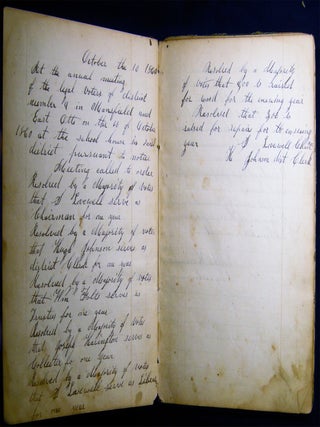 October the 10 1860
At the annual meeting
of the legal voters of district
number 4 in Mansfield and
East Otto on the 10 of October
1860 at the school house in said
district pursuant to notice
Meeting called to order
Resolved by a Majority of votes
that S Lovewell serve as
Chairman for one year
Resolved by a Majority of votes
that Hugh Johnson serve as
district Clerk for one year
Resolved by a Majority of votes
that Wm serve as
Trustee for one year
Resolved by a Majority of votes
that Joseph serve as
Collector for one year
Resolved by a Majority of votes
that S Lovewell serve as
for one year
Resolved by a Majority
of votes that be raised
for wood for the ensuing year
Resolved that
raised for repairs for the ensuing
year S Lovewell
H Johnson Dist Clerk